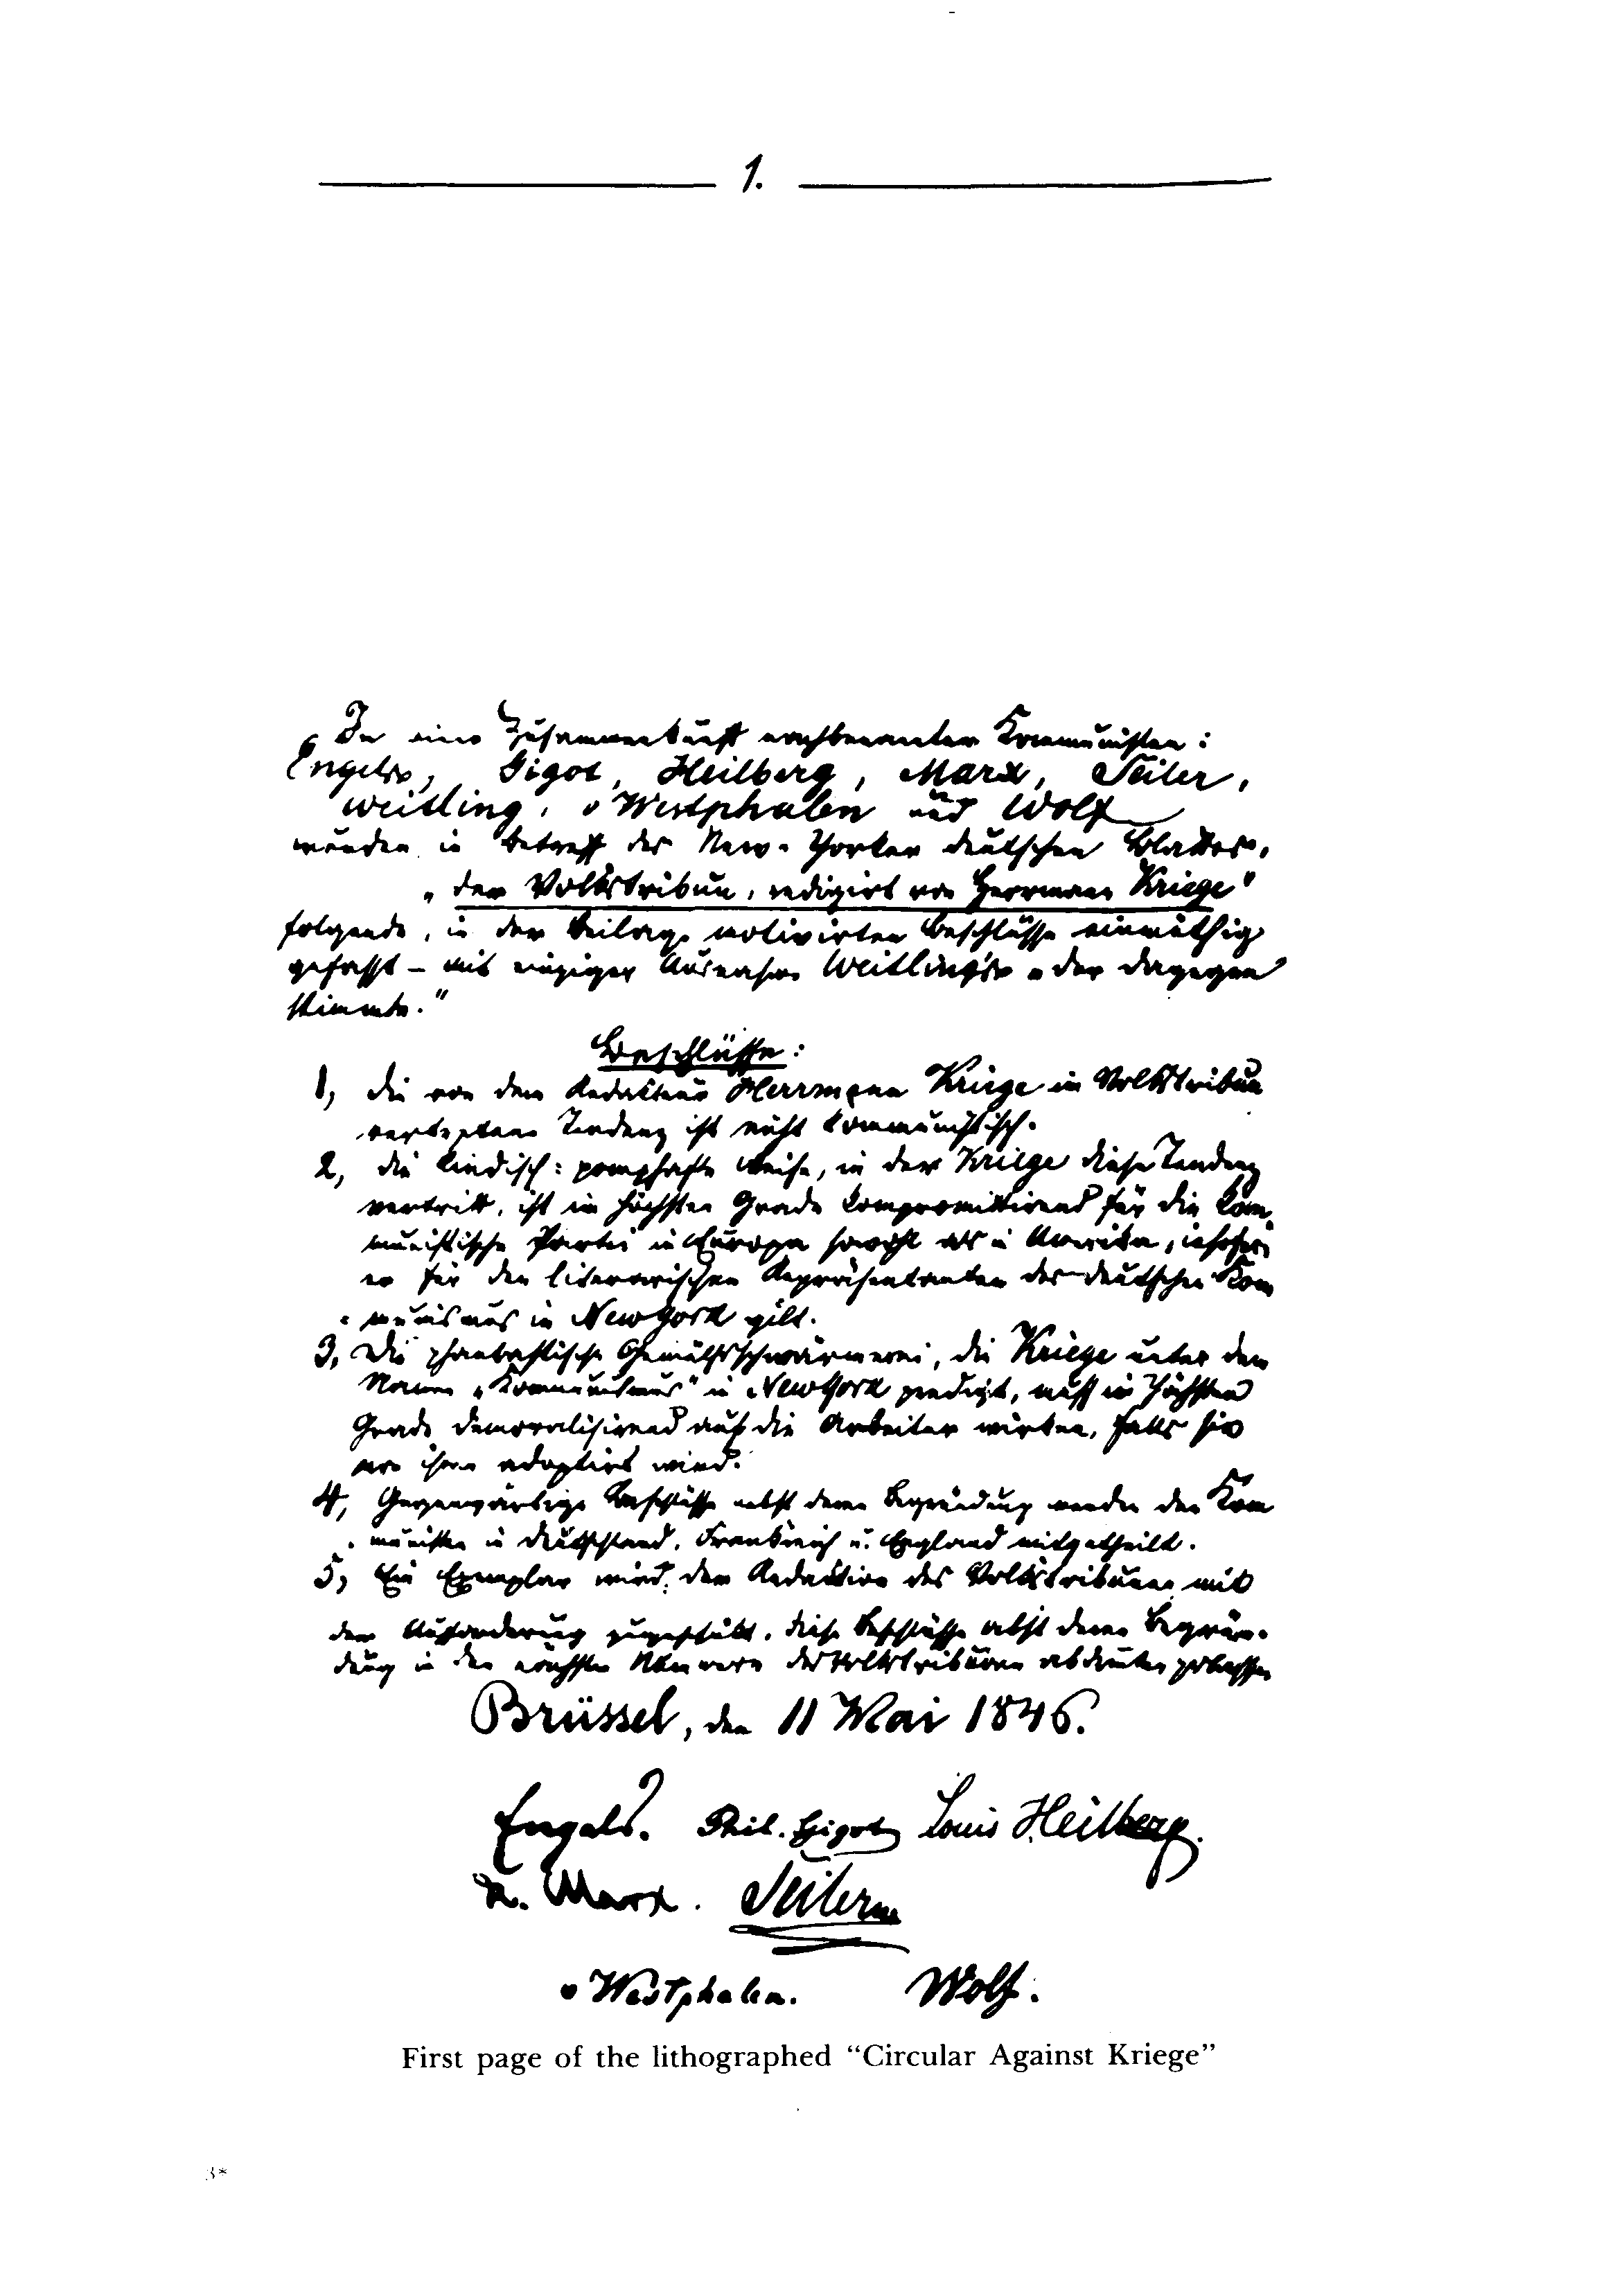 1.
In einer Zusammenkunft nachbenannter Kommunisten:
Engels, Gigot, Heilberg, Marx, Seiler,
Weitling, v Westphalen und Wolf
wurden in Betreff des New-Yorker deutschen Blattes,
„der Volkstribun, redigirt von Herrmann Kriege"
folgende, in der Beilage motivirten Beschlüsse einmüthig
gefasst – mit einziger Ausnahme Weitling's „der dagegen
stimmte."
Beschlüsse:
1, die von dem Redakteur Herrmann Kriege im Volkstribun
vertretene Tendenz ist nicht kommunistisch.
2, die kindisch: pomphafte Weise, in der Kriege diese Tendenz
vertritt, ist im höchsten Grade kompromittirend für die kom
munistische Partei in Europa sowohl als in Amerika, insofern
er für den literarischen Repräsentanten des deutschen Kom
munismus in New York gilt.
3, Die phantastische Gemüthsschwärmerei, die Kriege unter dem
Namen „Kommunismus" in New York predigt, muss im höchsten
Grade demoralisirend auf die Arbeiter wirken, falls sie
von ihnen adoptirt wird.
4, Gegenwärtige Beschlüsse nebst deren Begründung werden den Kom
munisten in Deutschland, Frankreich u. England mitgetheilt.
5, Ein Exemplar wird der Redaktion des Volkstribunen mit
der Aufforderung zugestellt, diese Beschlüsse nebst deren Begrün-
dung in den nächsten Nummern des Volkstribunen abdrucken zu lassen
Brüssel, den 11 Mai 1846.
Engels. Phil. Gigot Louis Heilberg.
K. Marx. Seiler
v Westphalen. Wolf.
First page of the lithographed “Circular Against Kriege”
3*